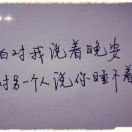 对我说着晚安
对另一个人说你睡不着